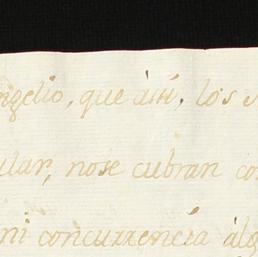 ngelio, que asi, los
ular, nose cubran co
ni concurrencia alg